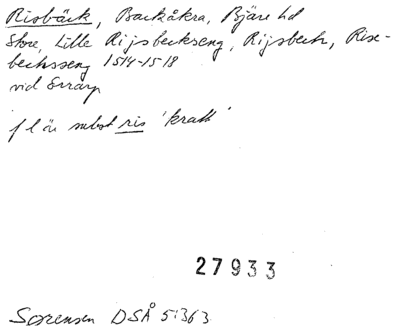 Risbäck, Backåkra, Bjäre hd
Store, Lille Rijsbeckseng, Rijsbeck, Rise-
becksseng 1514-1518
vid
f l är subst ris 'kratt'
27933
Sørensen DSÅ 5:363